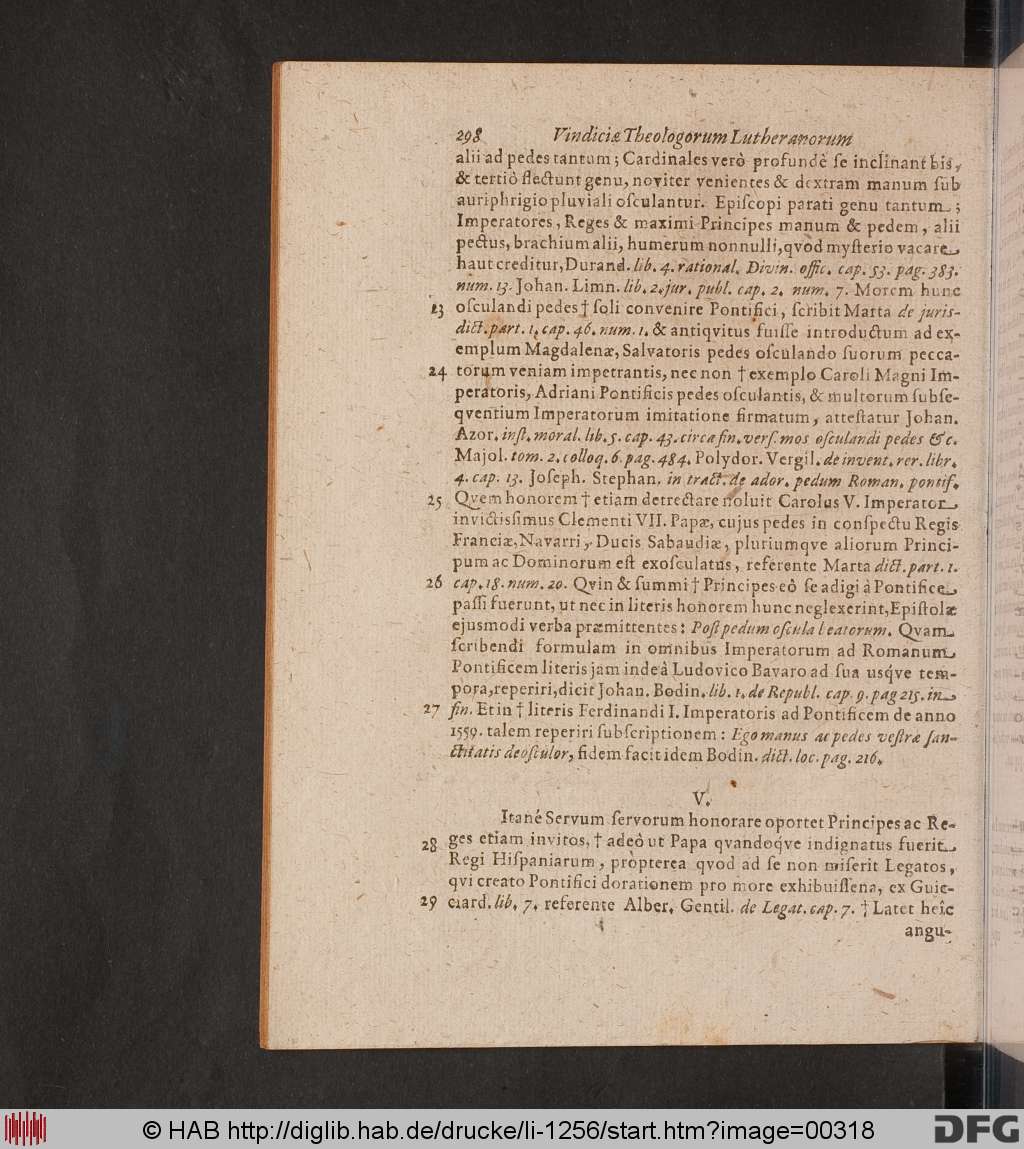 298 Vindiciæ Theologorum Lutheranorum
alii ad pedes tantum; Cardinales verò profundè ſe inclinant bis,
& tertiò flectunt genu, noviter venientes & dextram manum ſub
auriphrigio pluviali oſculantur. Epiſcopi parati genu tantum;
Imperatores, Reges & maximi Principes manum & pedem, alii
pectus, brachium alii, humerum nonnulli, qvod myſterio vacare
haut creditur, Durand. lib. 4. rational. Divin. offic. cap. 53. pag. 383.
num. 13. Johan. Limn. lib. 2. jur. publ. cap. 2. num. 7. Morem hunc
23 oſculandi pedes † ſoli convenire Pontifici, ſcribit Marta de juris-
dict. part. 1. cap. 46. num. 1. & antiqvitus fuiſſe introductum ad ex-
emplum Magdalenæ, Salvatoris pedes oſculando ſuorum pecca-
24 torum veniam impetrantis, nec non † exemplo Caroli Magni Im-
peratoris, Adriani Pontificis pedes oſculantis, & multorum ſubſe-
qventium Imperatorum imitatione firmatum, atteſtatur Johan.
Azor. inſt. moral. lib. 5. cap. 43. circa fin. verſ. mos oſculandi pedes &c.
Majol. tom. 2. colloq. 6. pag. 484. Polydor. Vergil. de invent. rer. libr.
4. cap. 13. Joſeph. Stephan. in tract. de ador. pedum Roman. pontif.
25 Qvem honorem † etiam detrectare noluit Carolus V. Imperator
invictisſimus Clementi VII. Papæ, cujus pedes in conſpectu Regis
Franciæ, Navarri, Ducis Sabaudiæ, pluriumqve aliorum Princi-
pum ac Dominorum eſt exoſculatus, referente Marta dict. part. 1.
26 cap. 18. num. 20. Qvin & ſummi † Principes eò ſe adigi à Pontifice
paſſi fuerunt, ut nec in literis honorem hunc neglexerint, Epiſtolæ
ejusmodi verba præmittentes: Poſt pedum oſcula beatorum. Qvam
ſcribendi formulam in omnibus Imperatorum ad Romanum
Pontificem literis jam inde à Ludovico Bavaro ad ſua usqve tem-
pora, reperiri, dicit Johan. Bodin. lib. 1. de Republ. cap. 9. pag 215. in
27 fin. Et in † literis Ferdinandi I. Imperatoris ad Pontificem de anno
1559. talem reperiri ſubſcriptionem: Ego manus ac pedes veſtræ ſan-
ctitatis deoſculor, fidem facit idem Bodin. dict. loc. pag. 216.
V.
Itané Servum ſervorum honorare oportet Principes ac Re-
28 ges etiam invitos, † adeò ut Papa qvandoqve indignatus fuerit
Regi Hiſpaniarum, propterea qvod ad ſe non miſerit Legatos,
qvi creato Pontifici dorationem pro more exhibuiſſent, ex Guic-
29 ciard. lib. 7. referente Alber. Gentil. de Legat. cap. 7. † Latet heîc
angu-
© HAB http://diglib.hab.de/drucke/li-1256/start.htm?image=00318
DFG